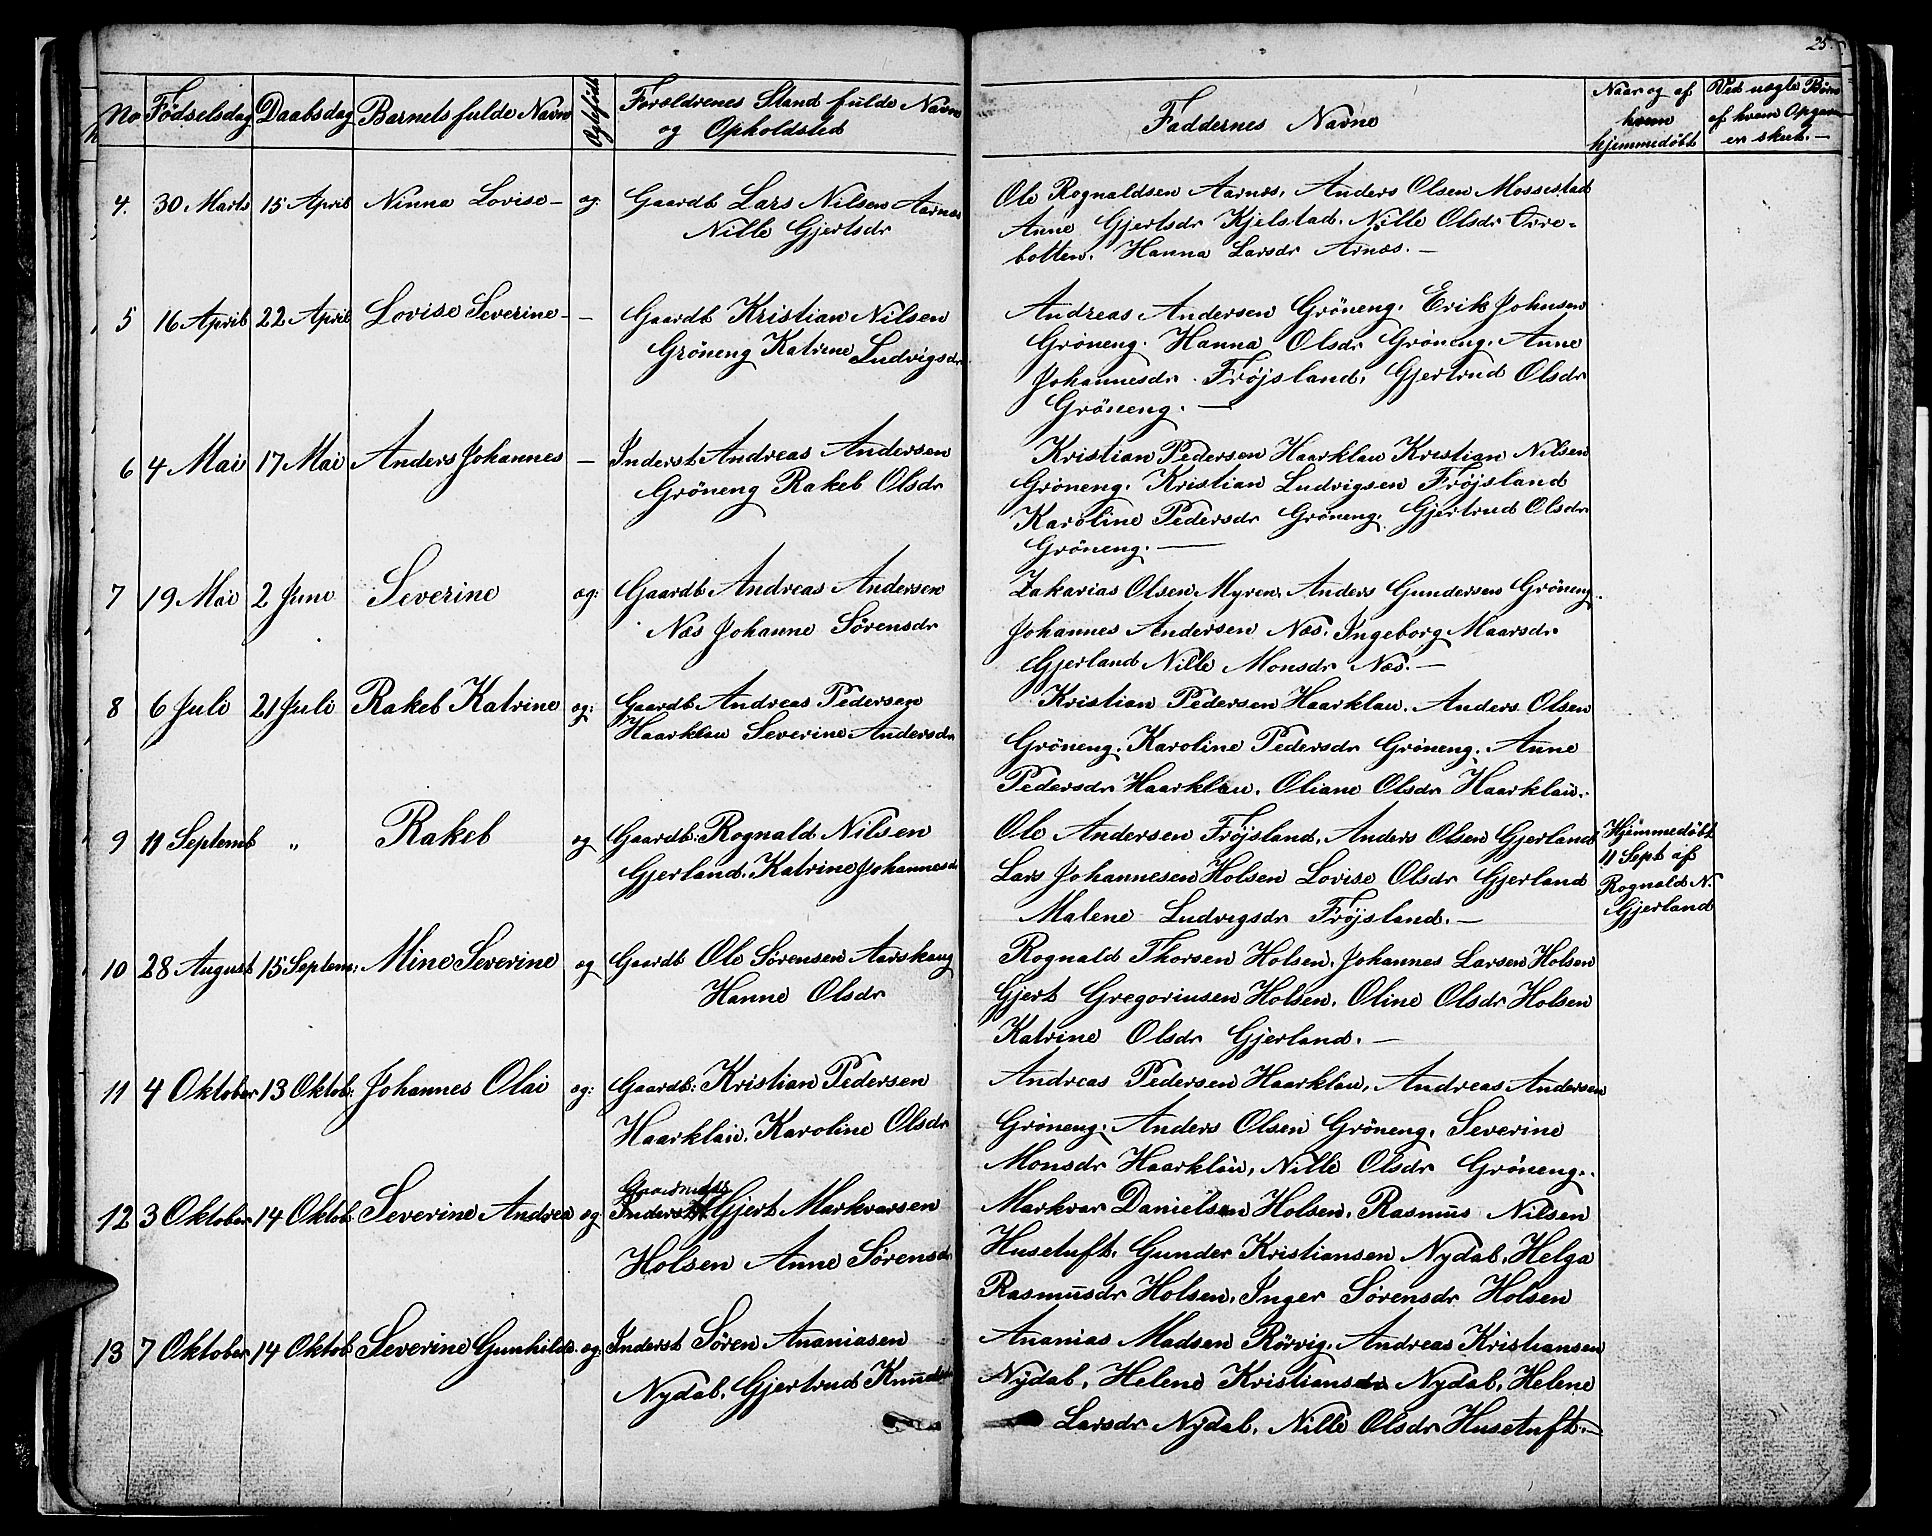 25.
No Fødselsdag Daabsdag Barnets fulde Navn Ogtefødt Forældrenes Stand fulde Navn og Opholdsted Faddernes Navne Naar og af hvem hjemmedøbt Ved uægte Børn af hvem Opgaven er skeet. —
4. 30 Marts 15 April Ninna Lovise — og: Gaardb Lars Nilsen Aarnæs
Nille Gjertsdr
Ole Rognaldsen Aarnæs, Anders Olsen Mossestad
Anne Gjertsdr Kjelstad. Nille Olsdr Orre-
botten. Hanna Larsdr Arnæs. —
5 16 April 22 April Lovise Severine — — Gaardb Kristian Nilsen
Grøneng Katrine Ludvigsdr
Andreas Andersen Grøneng. Erik Johnsen
Grøneng. Hanna Olsdr Grøneng. Anne
Johannesdr Frøjsland, Gjertrud Olsdr
Grøneng. —
6 4 Mai 17 Mai Anders Johannes — Inderst Andreas Andersen
Grøneng Rakel Olsdr
Kristian Pedersen Haarklau Kristian Nilsen
Grøneng. Kristian Ludvigsen Frøjsland
Karoline Pedersdr Grøneng. Gjertrud Olsdr
Grøneng. —
7 19 Mai 2 Juni Severine og: Gaardb Andreas Andersen
Næs Johanne Sørensdr
Zakarias Olsen Myren, Anders Gundersen Grøneng
Johannes Andersen Næs. Ingeborg Maarsdr
Gjerland Nille Monsdr Næs. —
8 6 Juli 21 Juli Rakel Katrine og: Gaardb Andreas Pedersen
Haarklau Severine Andersdr
Kristian Pedersen Haarklau. Anders Olsen
Grøneng. Karoline Pedersdr Grøneng. Anne
Pedersdr Haarklau. Oliane Olsdr Haarklau.
9 11 Septemb " Rakel og Gaardb: Rognald Nilsen
Gjerland. Katrine Johannesdr
Ole Andersen Frøjsland. Anders Olsen Gjerland
Lars Johannesen Holsen Lovise Olsdr Gjerland
Malene Ludvigsdr Frøjsland. —
Hjemmedøbt
11 Sept af
Rognald N.
Gjerland
10 28 August 15 Septem: Mine Severine og Gaardb Ole Sørensen Aarskaug
Hanne Olsdr
Rognald Thorsen Holsen. Johannes Larsen Holsen
Gjert Gregoriusen Holsen. Oline Olsdr Holsen
Katrine Olsdr Gjerland. —
11 4 Oktober 13 Oktob: Johannes Olai og: Gaardb: Kristian Pedersen
Haarklau. Karoline Olsdr
Andreas Pedersen Haarklau, Andreas Andersen
Grøneng. Anders Olsen Grøneng. Severine
Monsdr Haarklau, Nille Olsdr Grøneng.
12 3 Oktober 14 Oktob: Severine Andrea og Inderst Gjert Markvarsen
Holsen Anne Sørensdr
Markvar Danielsen Holsen. Rasmus Nilsen
Husetuft. Gunder Kristiansen Nydal. Helga
Rasmusdr Holsen. Inger Sørensdr Holsen
13 7 Oktober 14 Oktob Severine Gunhilde og: Inderst Søren Ananiasen
Nydal. Gjertrud Knudsdr
Ananias Madsen Rørvig. Andreas Kristiansen
Nydal. Helene Kristiansdr Nydal. Helene
Larsdr Nydal. Nille Olsdr Husetuft. —